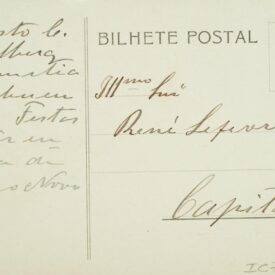 sto C.
lberg
buen
Festas
en
a de
o Novo
BILHETE POSTAL
Illmo Snr
René Lefevr
Capit